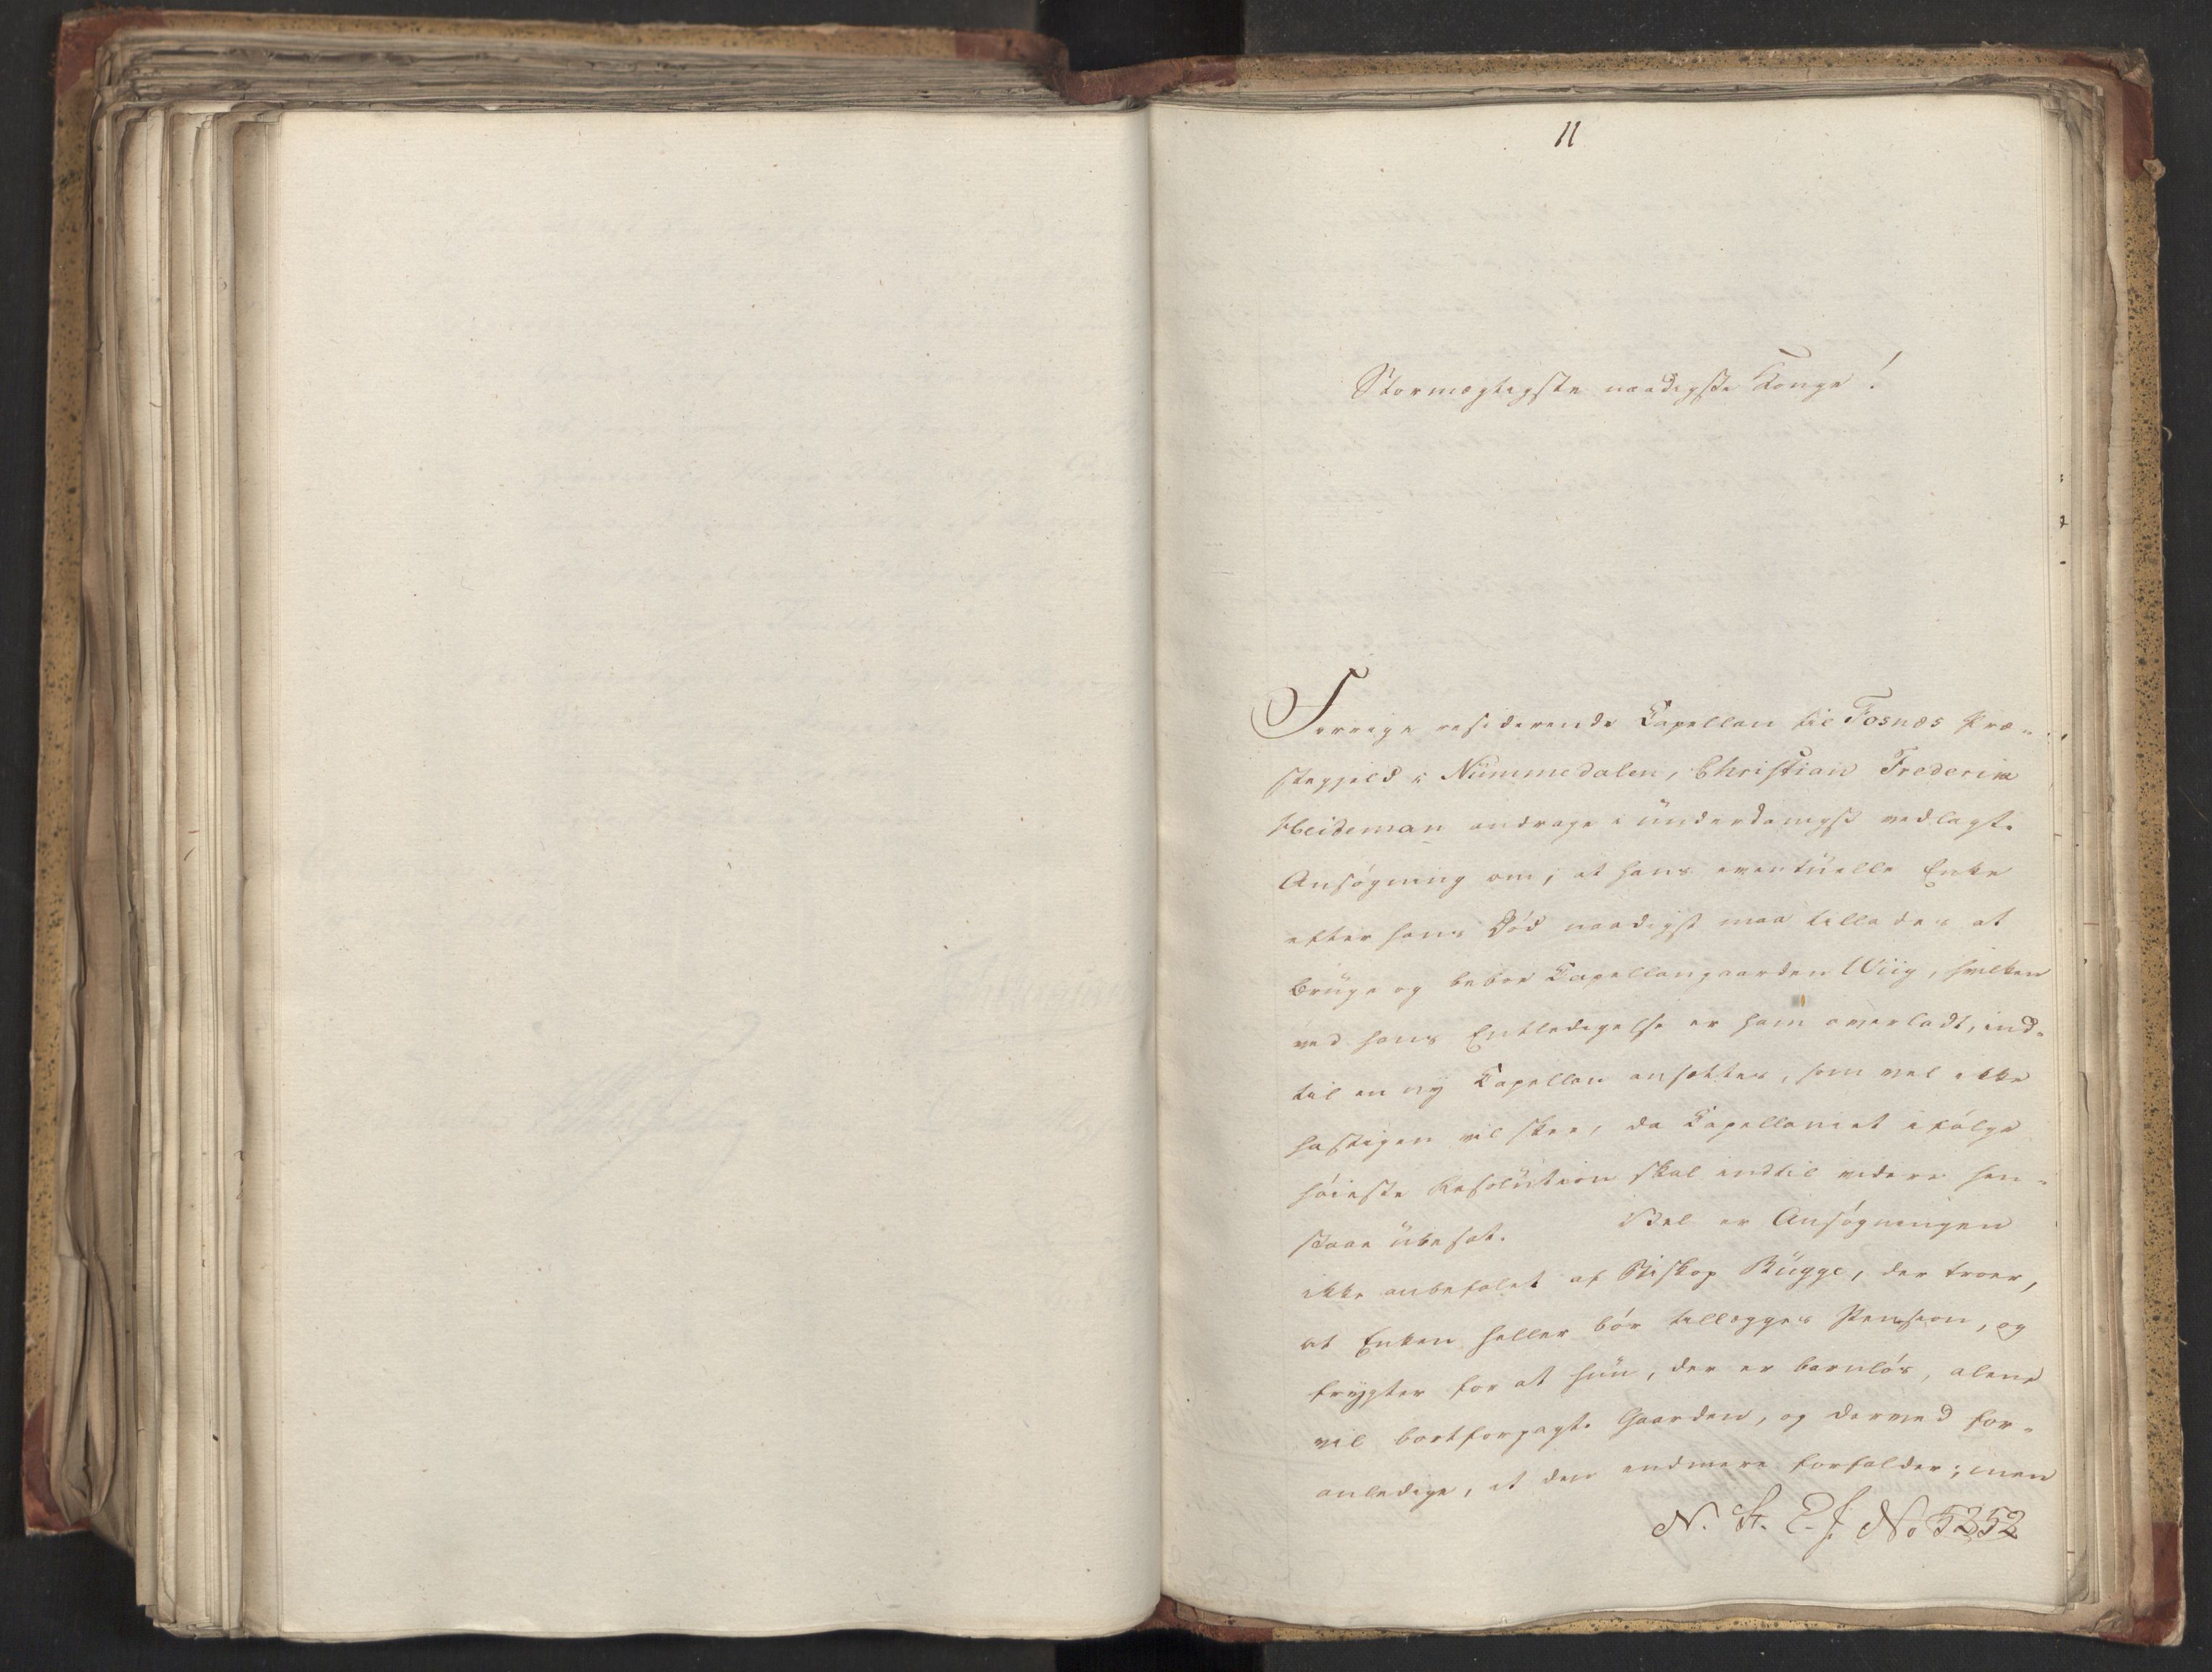 11
Stormægtigste naadigste Konge!
Forrige residerende Capellan til Fosnæs Præ-
stegjeld i Nummedalen, Christian Frederik
Heideman andrage i underdanigst vedlagte
Ansøgning om, at hans eventuelle Enke
efter hans Død naadigst maa tillades at
bruge og beboe Capellangaarden Wiig, hvilken
ved hans Entledigelse er ham overladt, ind-
til en ny Capellan ansættes, som vel ikke
hastigen vil skee, da Capellaniet ifølge
høieste Resolution skal indtil videre hen-
staae ubesat. Vel er Ansøgningen
ikke anbefalet af Biskop Bugge, der troer,
at Enken heller bør tillægges Pension, og
frygter for at hun, der er barnløs, alene
vil bortforpagte Gaarden, og derved for-
anledige, at den endmere forfalder; men
N. St. E. J. No 5252